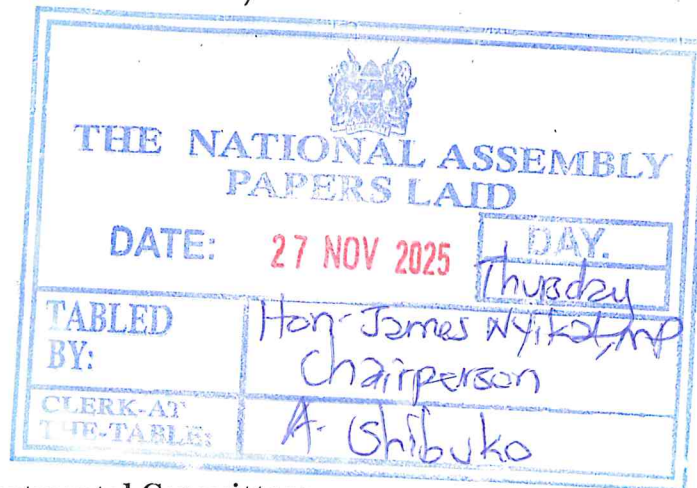 THE NATIONAL ASSEMBLY
PAPERS LAID
DATE: 27 NOV 2025 DAY.
Thursday
TABLED BY: Hon. James Nyikal, MP
Chairperson
CLERK-AT THE-TABLE: A. Shibuko
Committ